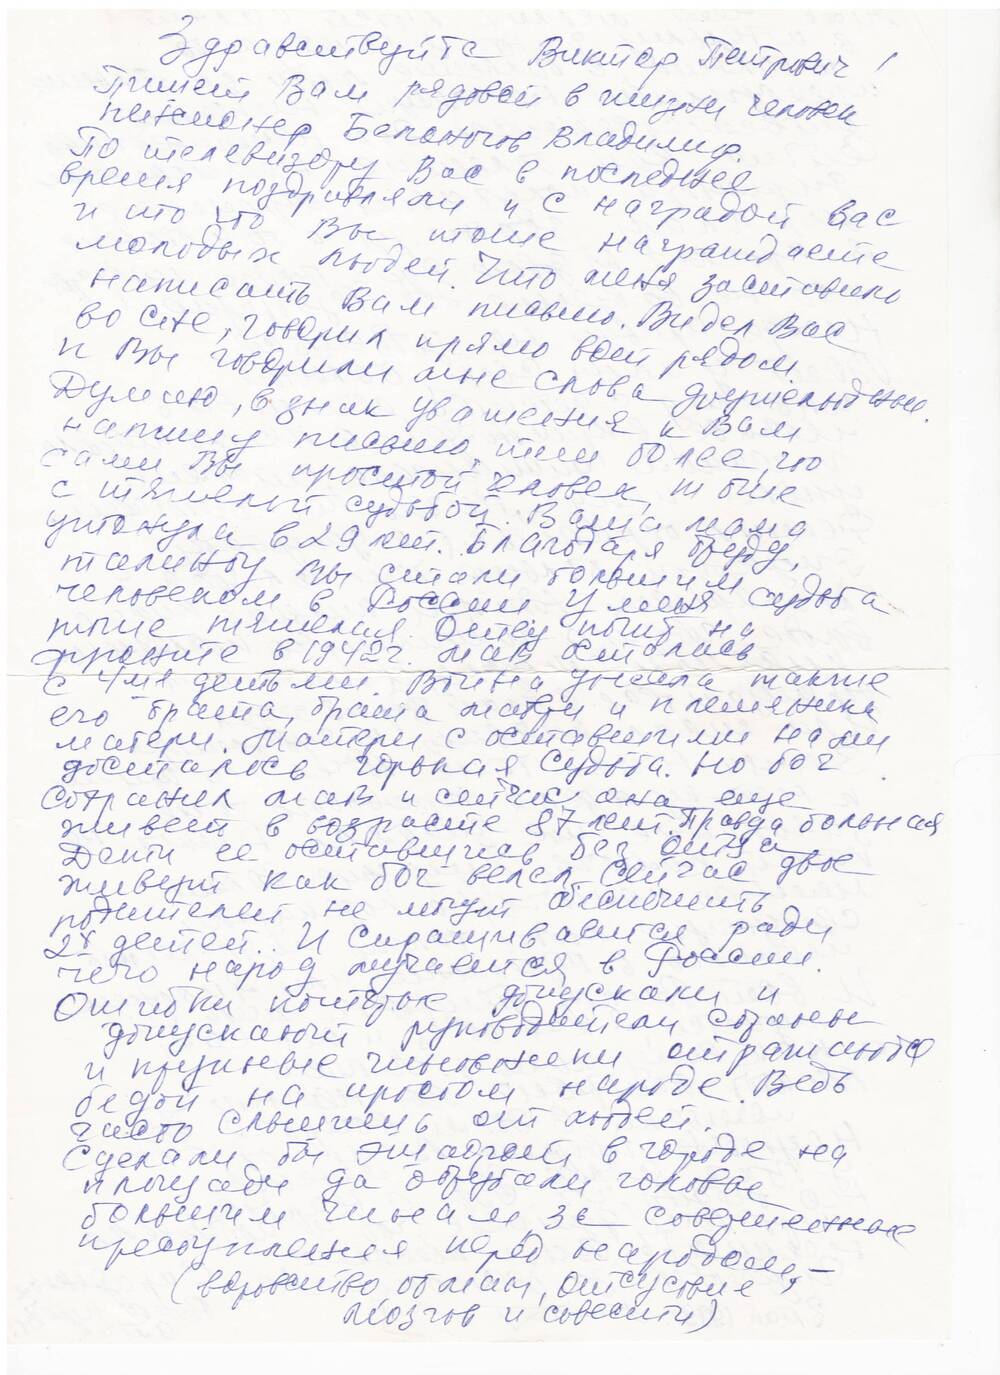 Здравствуйте Виктор Петрович!
Пишет Вам рядовой в жизни человек
пенсионер Владимир.
По телевизору Вас в последнее
время поздравляли и с наградой вас
и что Вы тоже награждаете
молодых людей. Что меня заставило
написать Вам письмо. Видел Вас
во сне, говорил прямо рядом
и Вы говорили мне слова
Думаю, в знак уважения к Вам
напишу письмо, тем более, что
сами Вы простой человек, тоже
с тяжелой судьбой. Ваша мама
утонула в 29 лет. Благодаря труду,
таланту Вы стали большим
человеком в России У меня судьба
тоже тяжелая. Отец погиб на
фронте в 1942 г. осталась
с 4мя детьми. Война унесла также
его брата, брата и племянника
матери. Матери с оставшими нами
досталось горькая судьба. Но бог
сохранил и сейчас она еще
живет в возрасте 87 лет. Правда больная
Дети ее оставшиеся без отца
живут как бог велел. Сейчас двое
родителей не могут обеспечить
2х детей. И спрашивается ради
чего народ мучается в России.
Ошибки которые допускали и
допускают руководители страны
и крупные чиновники отражаются
бедой на простом народе. Ведь
часто слышишь от людей.
Сделали бы эшафот в городе на
площади да отрубали головы
большим чинам за совершенные
преступления перед народом, –
(воровство обман, отсуствие
мозгов и совести)